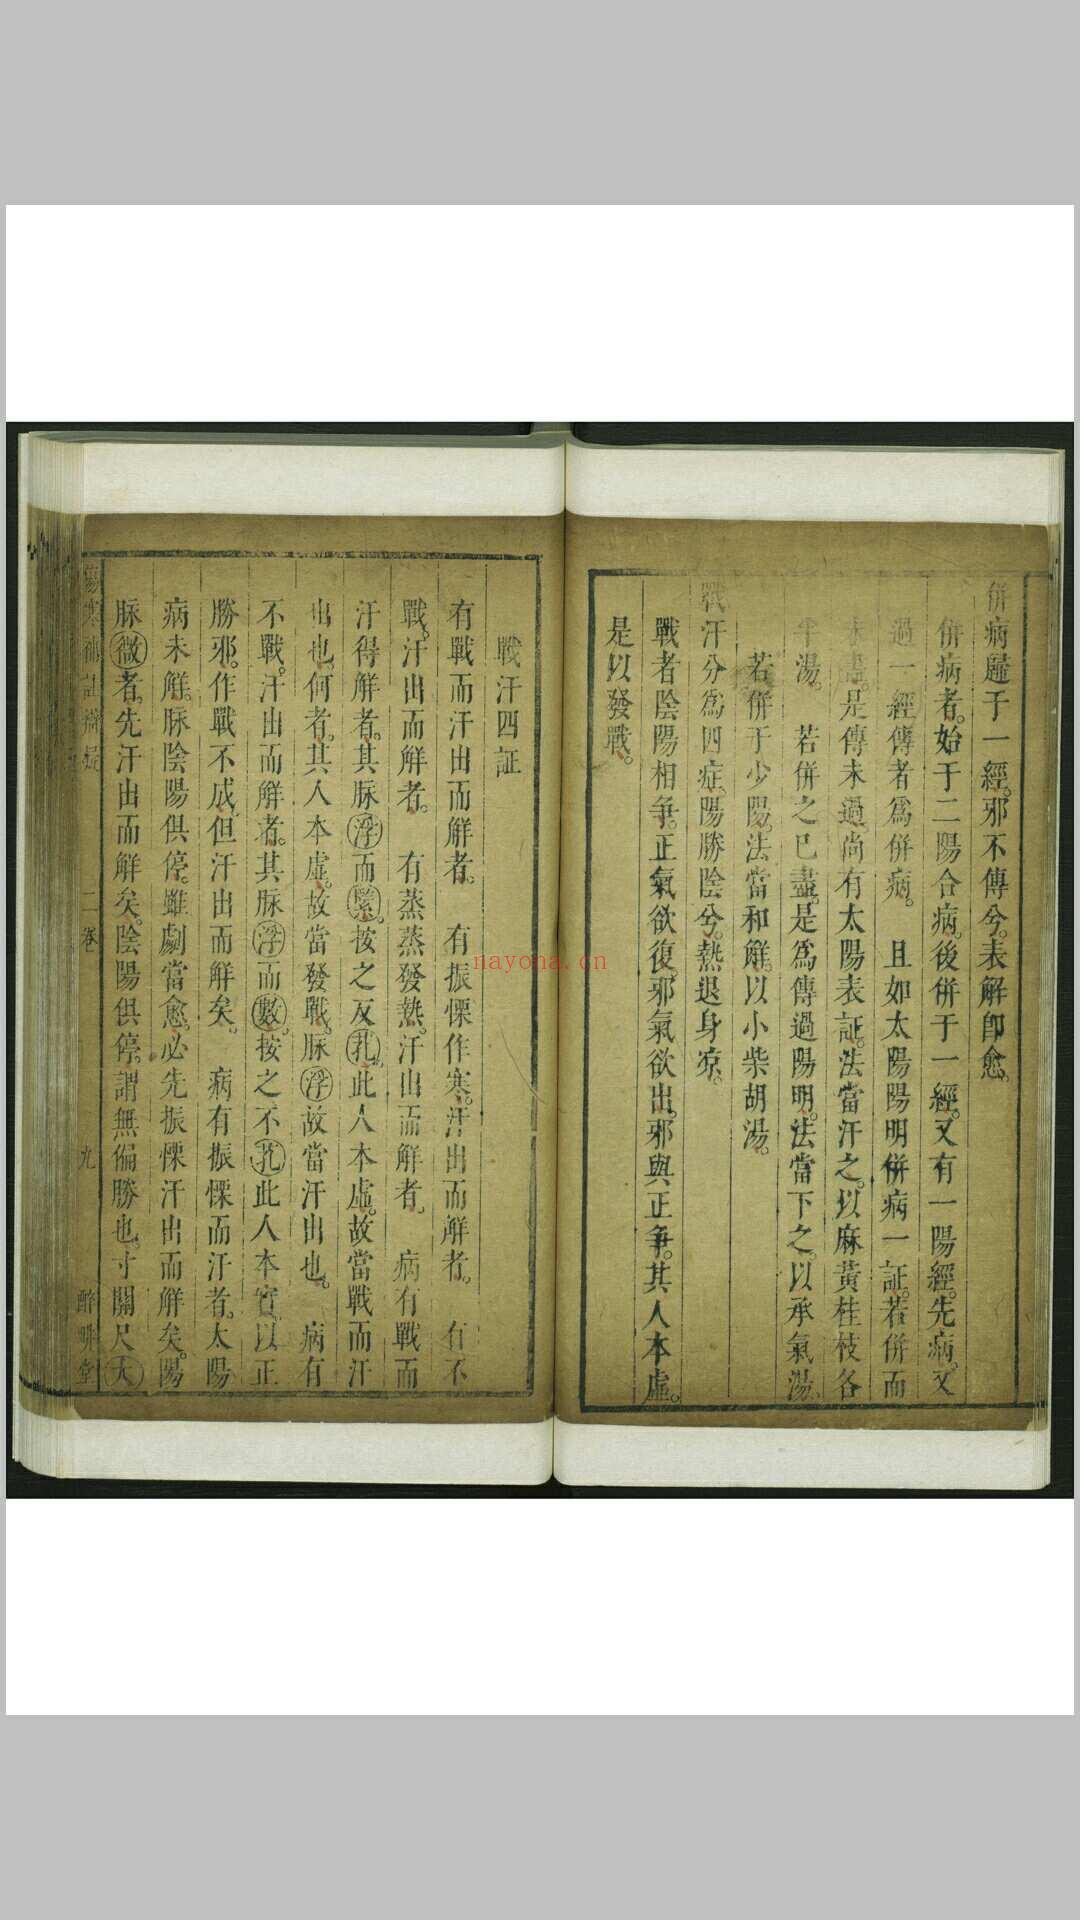 併病歸于一經。邪不傳兮。表解即愈。
併病者。始于二陽合病。後併于一經。又有一陽經。先病。又
過一經傳者爲併病。 且如太陽陽明併病一証。若併而
未盡。是傳未過。尚有太陽表証。法當汗之。以麻黃桂枝各
半湯。 若併之已盡。是爲傳過陽明。法當下之。以承氣湯。
若併于少陽。法當和解。以小柴胡湯。
戰汗分爲四症。陽勝陰兮。熱退身凉。
戰者陰陽相争。正氣欲復。邪氣欲出。邪與正争。其人本虛。
是以發戰。
戰汗四証
有戰而汗出而解者。 有振慄作寒。汗出而解者。 有不
戰。汗出而解者。 有蒸蒸發熱。汗出而解者。 病有戰而
汗得解者。其脉浮而緊。按之反芤。此人本虛。故當戰而汗
出也。何者。其人本虛。故當發戰。脉浮故當汗出也。 病有
不戰。汗出而解者。其脉浮而數。按之不芤。此人本實。以正
勝邪。作戰不成。但汗出而解矣。 病有振慄而汗者。太陽
病未解。脉陰陽俱停。雖劇當愈。必先振慄汗出而解矣。陽
脉微者。先汗出而解矣。陰陽俱停。謂無偏勝也。寸關尺大
傷寒補註辯疑 二卷 九 醉畊堂
nayona.cn